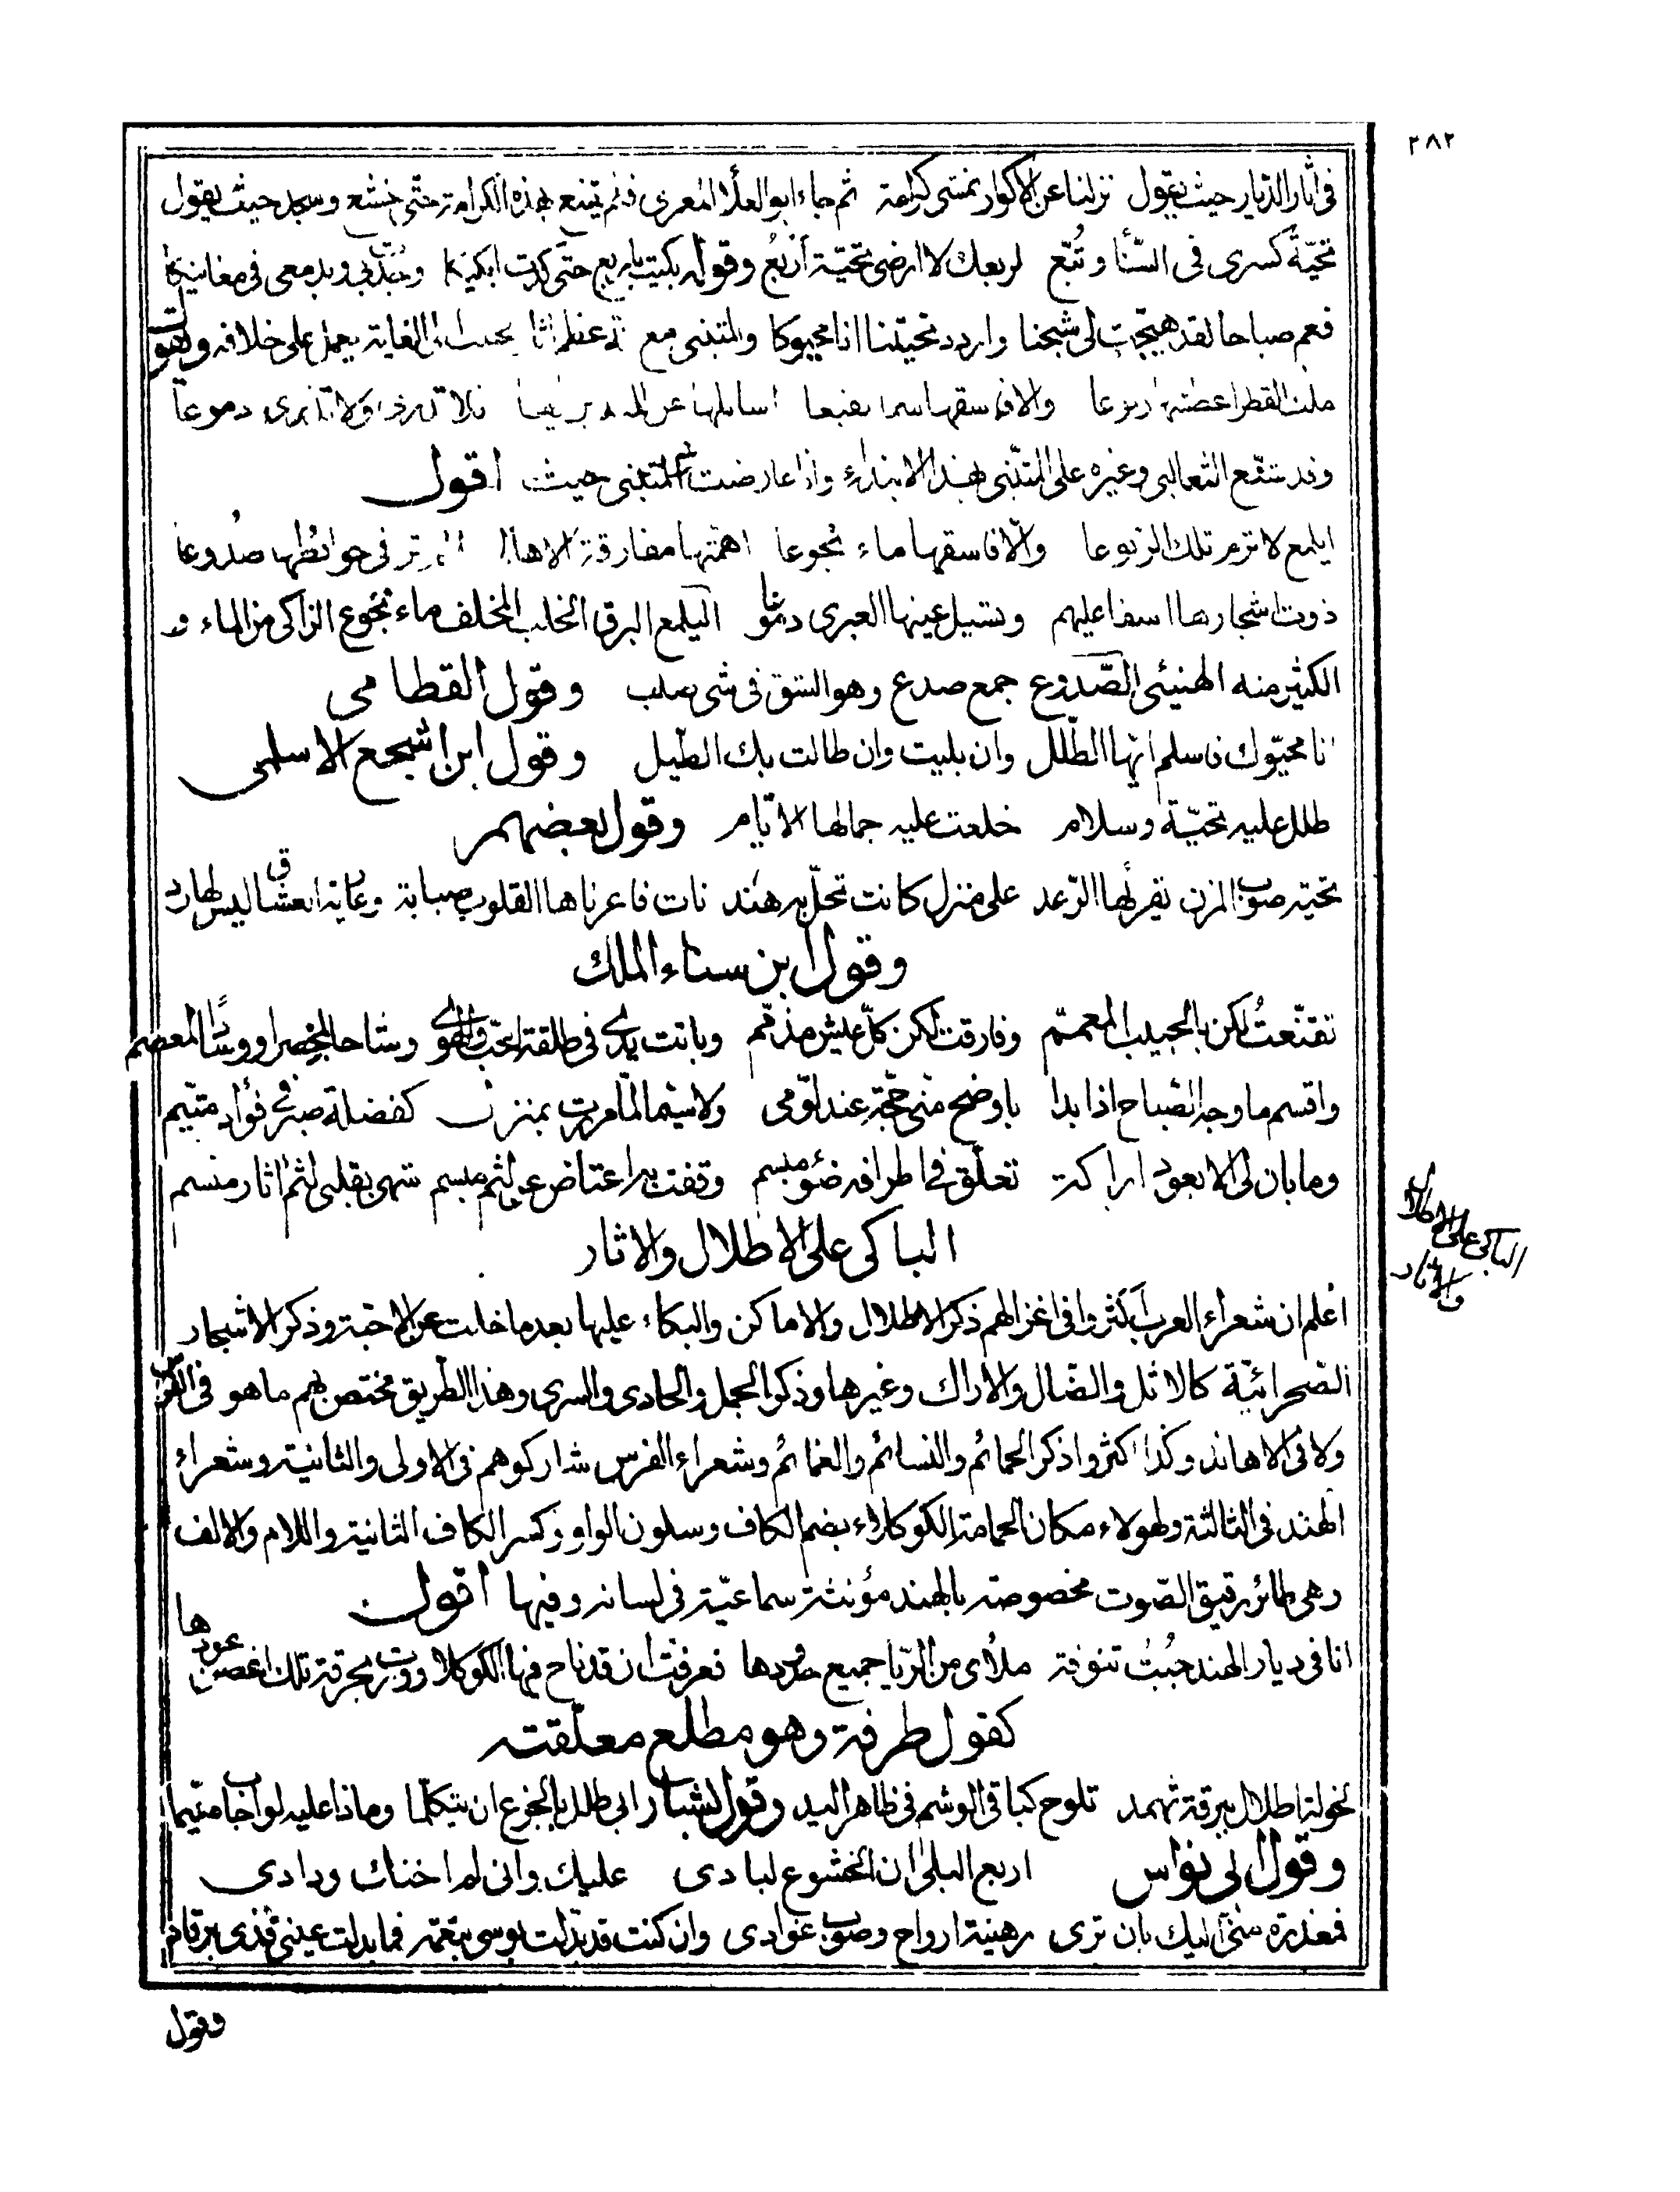 ٢٨٢
في آثار الديار حيث يقول نزلنا عن الاكوار نمشي كرامة ثم جاء ابو العلا المعرى فلم يقنع بهذه الكرامة حتّى خشع وسجد حيث يقول
تحيّة كسرى فى السّنأ وتُبّع لربعك لا ارضى تحيّة أربُع وقوله بكيت ياربع حتّى كدت ابكيكا وجُدت بى وبدمعى فى مغانيكا
فعم صباحا لقد هيّجت لى شجنا واردد تحيّتنا انا محيوكا والمتنبى مع الغاية يعمل على خلافه ويقول
ملث القطر اعطشها ربوعا والا فاسقها السم النقيعا اسائلها عن فلا تدرى ولا تذرى دموعا
وقد شنّع الثعالبى وغيره على المتنّبى بهذا الابتداء وانا عارضت المتنبى حيث اقول
ايلمع لا ترم تلك الربوعا والّا فاسقها ماء نجوعا اهمتها مفارقة الاهالى الم تر فى حوائطها صُدُوعا
ذوت اشجارها اسفا عليهم وتسيل عينها العبرى دموعا اليلمع البرق الخلب المخلف ماء نجوع الزاكى من الماء و
الكثير منه الهنيئى الصّدوع جمع صدع وهو الشق فى شى صلب وقول القطامى
انا محيّوك فاسلم ايّها الطّلل وان بليت وان طالت بك الطّيل وقول ابن اشجع الاسلمى
طلل عليه تحيّة وسلام خلعت عليه جمالها الايّام وقول بعضهم
تحية صوب المزن يقرئها الرّعد على منزل كانت تحلّ به هند نات فاعرناها القلوب صبابة وعاية العشاق ليس لها رد
وقول ابن سناء الملك
تقنّعتُ لكن بالحبيب المعمّم وفارقت لكن كلّ عيش مذمّم وباتت يدى فى طاعة الحب والهوى وشاحا لخصر او وسادا لمعصم
واقسم ما وجه الصّباح اذا بدا باوضح منّى حجّة عند لوّمى ولا سيّما لمّا مررت بمنزل كفضلة صبر فى فؤاد متيّم
وما بان لى الا بعود اراكة تعلّق فى اطرافه ضوء مبسم وقفت به اعتاض عن لثم مبسم شهى بقلبى لثم اثار منسم
الباكى على الاطلال والاثار
الباكى على الاطلال
والاثار
اعلم ان شعراء العرب اكثروا فى اغزالهم ذكر الاطلال والاماكن والبكاء عليها بعد ما خلت عن الاحبّة وذكر الاشجار
الصّحرائيّة كالاثل والضّال والاراك وغيرها وذكر الجمل والحادى والسرى وهذا الطريق مختص بهم ما هو فى الفرس
ولا فى الاهاند وكذا اكثروا ذكر الحمائم والنسائم والغمائم وشعراء الفرس شاركوهم فى الاولى والثانية وشعراء
الهند فى الثالثة ولهولاء مكان الحمامة الكوكلاء بضم الكاف وسكون الواو وكسر الكاف الثانية واللام والالف
وهى طائر رقيق الصّوت مخصوصة بالهند مؤنثة سماعيّة فى لسانه وفيها اقول
انا فى ديار الهند جُبْتُ تنوفة ملأى من الريّا جميع حدودها فعرفت ان قد ناح فيها الكوكلا وروت بحرقة تلك اغصن عودها
كقول طرفة وهو مطلع معلّقته
لخولة اطلال ببرقة ثهمد تلوح كباقى الوشم فى ظاهر اليد وقول بشار ابى طلل بالجزع ان يتكلّما وماذا عليه لو اجاب متيّما
وقول ابى نواس اربع البلىٰ ان الخشوع لبادى عليك وانى لم اخنك ودادى
فمعذرة منّى اليك بان ترى رهينة ارواح وصوب غوادى وان كنت قد بدّلت بوسى بنعمة فما بدلت عينى قذى برقاد
وقول